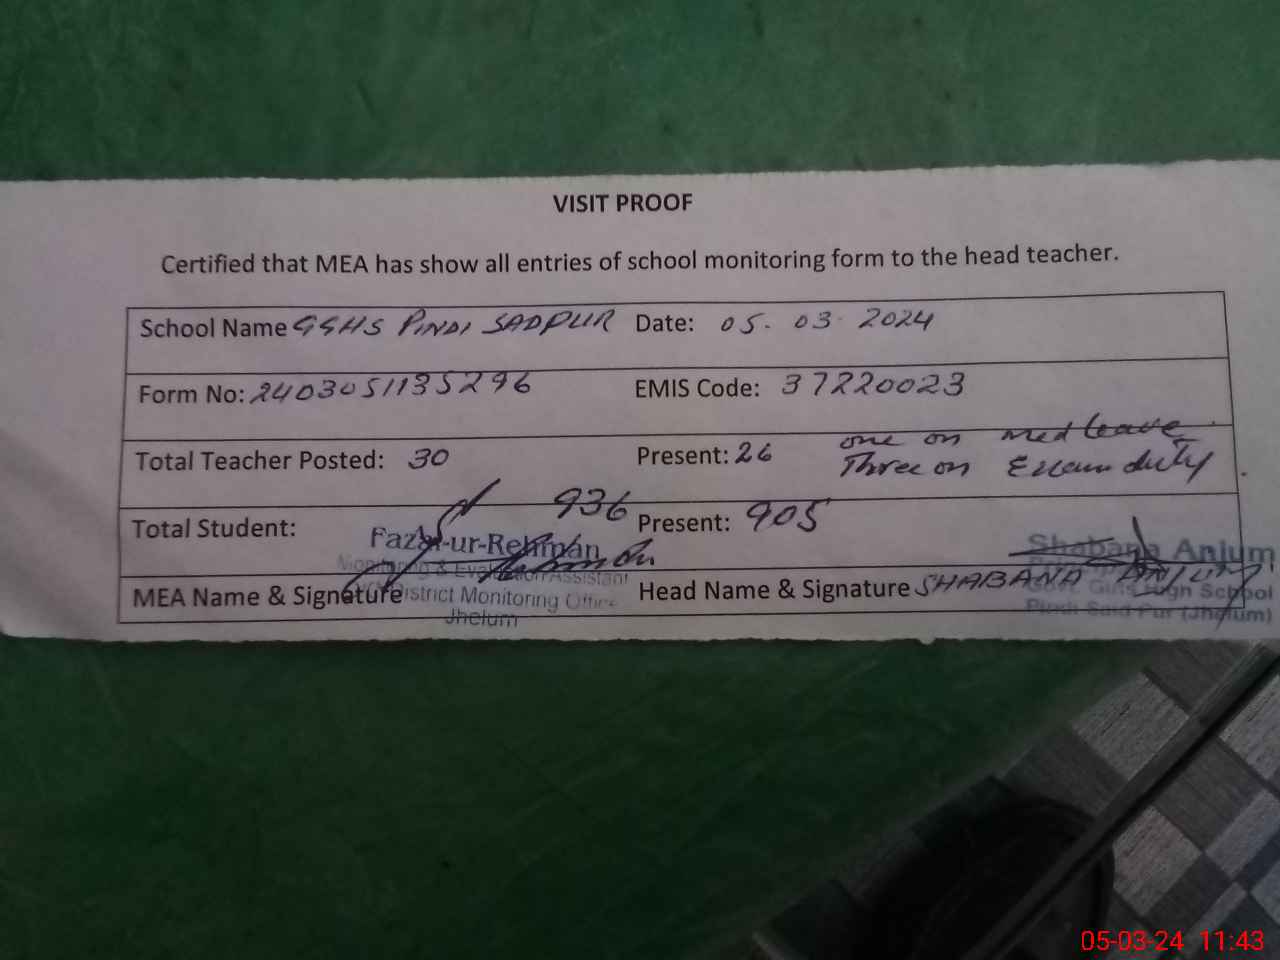 VISIT PROOF
Certified that MEA has show all entries of school monitoring form to the head teacher.
School Name GGHS PINDI SADPUR Date: 05. 03. 2024
Form No: 2403051135296 EMIS Code: 37220023
Total Teacher Posted: 30 Present: 26 one on med leave
Three on Exam duty
Total Student: 936 Present: 905
Fazal-ur-Rehman
Monitoring & Evaluation Assistant
District Monitoring Office
Jhelum
MEA Name & Signature
Shabana Anjum
Govt. Girls High School
Pindi Said Pur (Jhelum)
Head Name & Signature SHABANA ANJUM
05-03-24 11:43